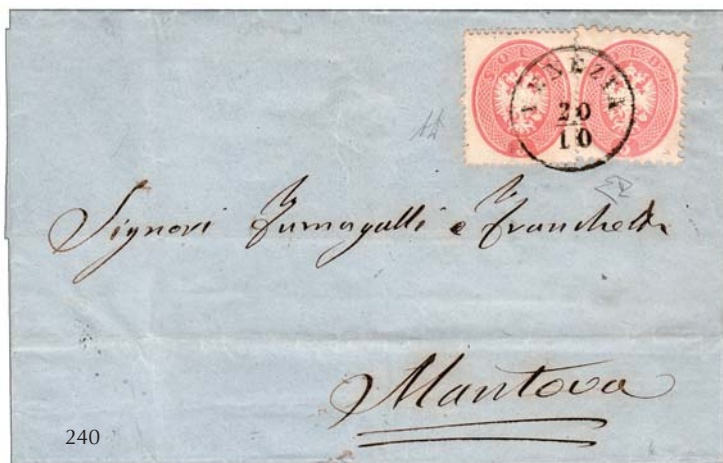 SOLDI SOLDI
VENEZIA
20
10
Signori Fumagalli e Franchetti
Mantova
240